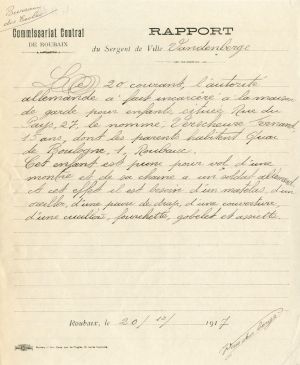 Bureau
des Ecoles
Commissariat Central
DE ROUBAIX
RAPPORT
du Sergent de Ville Vandenberge
Le 20 courant, l'autorité
allemande a fait incarcéré à la maison
de garde pour enfants, située Rue du
Pays, 27, le nommé Fernand
ans dont les parents habitent Quai
de Boulogne 1, Roubaix.
Cet enfant est puni pour vol d'une
montre et de sa chaine a un soldat allemand
A cet effet il est besoin d'un matelas, d'un
oreiller, d'une paire de drap, d'une couverture,
d'une cuiller, fourchette, gobelet et assiette.
Roubaix, le 20/12/1917